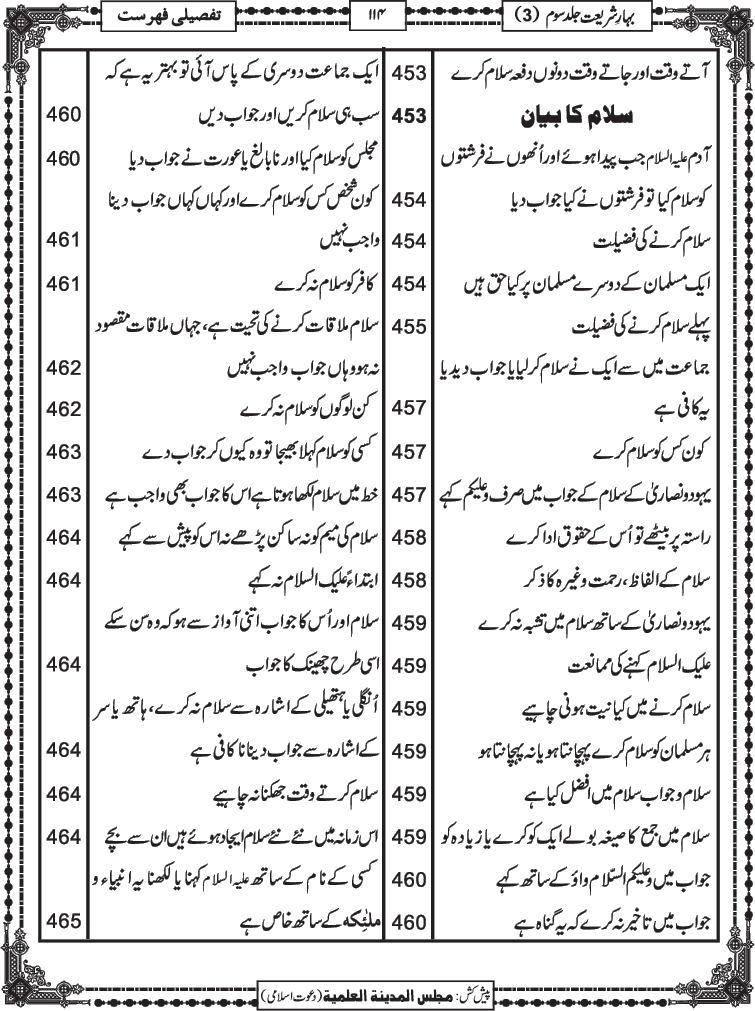 بہار شریعت جلد سوم (3)
۱۱۴
تفصیلی فہرست
آتے وقت اور جاتے وقت دونوں دفعہ سلام کرے 453
سلام کا بیان 453
آدم علیہ السلام جب پیدا ہوئے اور اُنھوں نے فرشتوں
کو سلام کیا تو فرشتوں نے کیا جواب دیا 454
سلام کرنے کی فضیلت 454
ایک مسلمان کے دوسرے مسلمان پر کیا حق ہیں 454
پہلے سلام کرنے کی فضیلت 455
جماعت میں سے ایک نے سلام کر لیا یا جواب دیدیا
یہ کافی ہے 457
کون کس کو سلام کرے 457
یہود و نصاریٰ کے سلام کے جواب میں صرف وعلیکم کہے 457
راستہ پر بیٹھے تو اُس کے حقوق ادا کرے 458
سلام کے الفاظ، رحمت وغیرہ کا ذکر 458
یہود و نصاریٰ کے ساتھ سلام میں تشبہ نہ کرے 459
علیک السلام کہنے کی ممانعت 459
سلام کرنے میں کیا نیت ہونی چاہیے 459
ہر مسلمان کو سلام کرے پہچانتا ہو یا نہ پہچانتا ہو 459
سلام و جواب سلام میں افضل کیا ہے 459
سلام میں جمع کا صیغہ بولے ایک کو کرے یا زیادہ کو 459
جواب میں وعلیکم السّلام واؤ کے ساتھ کہے 460
جواب میں تاخیر نہ کرے کہ یہ گناہ ہے 460
ایک جماعت دوسری کے پاس آئی تو بہتر یہ ہے کہ
سب ہی سلام کریں اور جواب دیں 460
مجلس کو سلام کیا اور نابالغ یا عورت نے جواب دیا 460
کون شخص کس کو سلام کرے اور کہاں کہاں جواب دینا
واجب نہیں 461
کافر کو سلام نہ کرے 461
سلام ملاقات کرنے کی تحیت ہے، جہاں ملاقات مقصود
نہ ہو وہاں جواب واجب نہیں 462
کن لوگوں کو سلام نہ کرے 462
کسی کو سلام کہلا بھیجا تو وہ کیوں کر جواب دے 463
خط میں سلام لکھا ہوتا ہے اس کا جواب بھی واجب ہے 463
سلام کی میم کو نہ ساکن پڑھے نہ اس کو پیش سے کہے 464
ابتداءً علیک السلام نہ کہے 464
سلام اور اُس کا جواب اتنی آواز سے ہو کہ وہ سن سکے
اسی طرح چھینک کا جواب 464
اُنگلی یا ہتھیلی کے اشارہ سے سلام نہ کرے، ہاتھ یا سر
کے اشارہ سے جواب دینا ناکافی ہے 464
سلام کرتے وقت جھکنا نہ چاہیے 464
اس زمانہ میں نئے نئے سلام ایجاد ہوئے ہیں ان سے بچے 464
کسی کے نام کے ساتھ علیہ السلام کہنا یا لکھنا یہ انبیاء و
ملٰئکہ کے ساتھ خاص ہے 465
پیش کش: مجلس المدینة العلمیة (دعوت اسلامی)